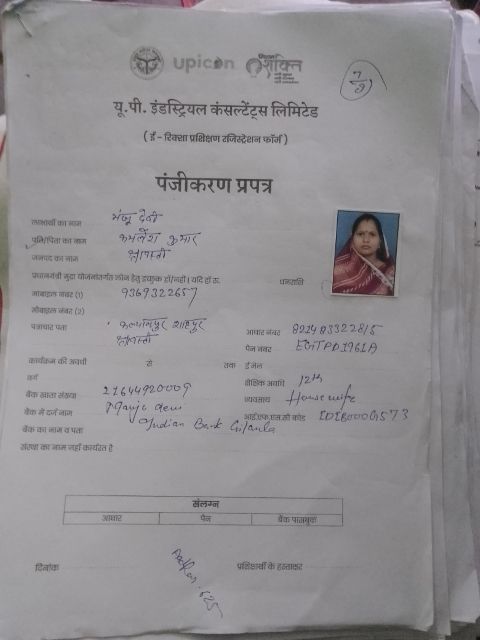 upicon
शक्ति
यू.पी. इंडस्ट्रियल कंसल्टेंट्स लिमिटेड
( ई - रिक्शा प्रशिक्षण रजिस्ट्रेशन फॉर्म )
पंजीकरण प्रपत्र
लाभार्थी का नाम मंजू देवी
पति/पिता का नाम कमलेश कुमार
जनपद का नाम श्रावस्ती
प्रधानमंत्री मुद्रा योजनांतर्गत लोन हेतु इच्छुक हाँ/नहीं। यदि हाँ रु. धनराशि
मोबाइल नंबर (1) 9369322657
मोबाइल नंबर (2)
पत्राचार पता कल्यानपुर शाहपुर आधार नंबर
श्रावस्ती पेन नंबर
कार्यक्रम की अवधी से तक ई मेल
वर्ग शैक्षिक अवधि 12th
बैंक खाता संख्या 21644920009 व्यवसाय House wife
बैंक में दर्ज नाम Manju devi आई.एफ.एस.सी कोड IDIB000G573
बैंक का नाम व पता Indian Bank Gilaula
संस्था का नाम जहाँ कार्यरत है
संलग्न
आधार पेन बैंक पासबुक
दिनांक प्रशिक्षार्थी के हस्ताक्षर